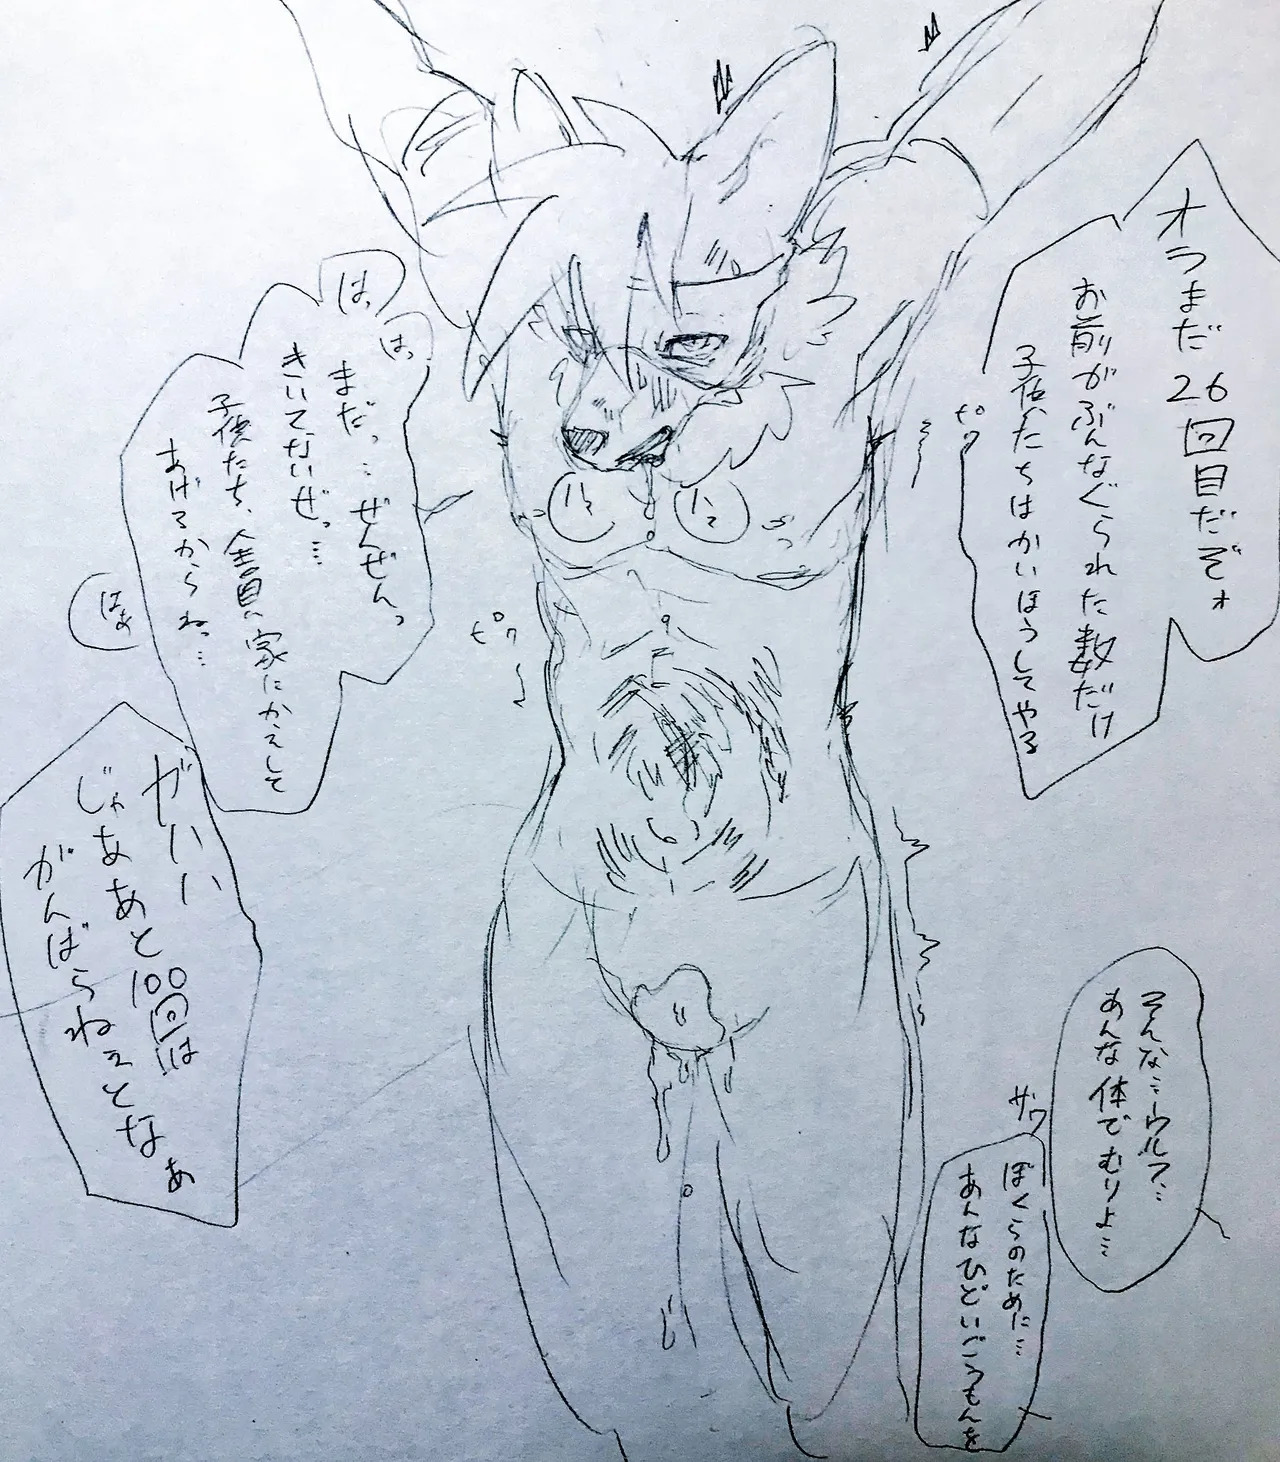 オラまだ26回目だぞォ
お前がぶんなぐられた数だけ
子供たちはかいほうしてやる
ピクッ
は、
は、
まだっ…ぜんぜんっ
きいてないぜっ…
子供たち、全員、家にかえして
あげるからねっ…
はぁ
ピク
ガハハ
じゃああと100回は
がんばらねェとなぁ
そんな…ウルフ…
あんな体でむりよ…
ザワ
ぼくらのために…
あんなひどいごうもんを